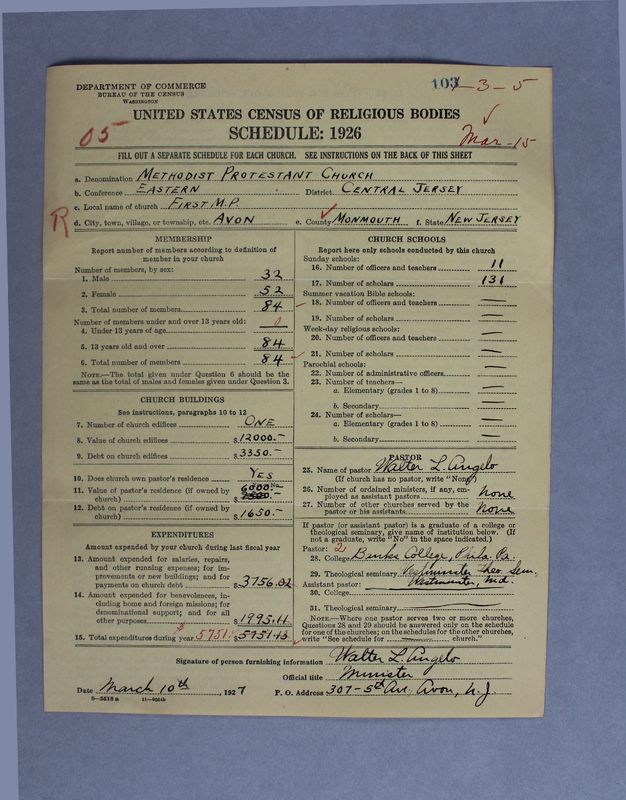 DEPARTMENT OF COMMERCE
BUREAU OF THE CENSUS
WASHINGTON
103 1-3-5
UNITED STATES CENSUS OF RELIGIOUS BODIES
SCHEDULE: 1926
05
Mar-15
FILL OUT A SEPARATE SCHEDULE FOR EACH CHURCH. SEE INSTRUCTIONS ON THE BACK OF THIS SHEET
a. Denomination METHODIST PROTESTANT CHURCH
b. Conference EASTERN District CENTRAL JERSEY
c. Local name of church FIRST M.P.
R
d. City, town, village, or township, etc. AVON e. County MONMOUTH f. State NEW JERSEY
MEMBERSHIP
Report number of members according to definition of
member in your church
Number of members, by sex:
1. Male 32
2. Female 52
3. Total number of members 84
Number of members under and over 13 years old:
4. Under 13 years of age 0
5. 13 years old and over 84
6. Total number of members 84
NOTE.—The total given under Question 6 should be the
same as the total of males and females given under Question 3.
CHURCH BUILDINGS
See instructions, paragraphs 10 to 12
7. Number of church edifices ONE
8. Value of church edifices $12000.-
9. Debt on church edifices $3350.-
10. Does church own pastor's residence YES
11. Value of pastor's residence (if owned by
church) $ 6000.
12. Debt on pastor's residence (if owned by
church) $1650.-
EXPENDITURES
Amount expended by your church during last fiscal year
13. Amount expended for salaries, repairs,
and other running expenses; for im-
provements or new buildings; and for
payments on church debt $3756.02
14. Amount expended for benevolences, in-
cluding home and foreign missions; for
denominational support; and for all
other purposes $1995.11
15. Total expenditures during year $5751. $5751.13
CHURCH SCHOOLS
Report here only schools conducted by this church
Sunday schools:
16. Number of officers and teachers 11
17. Number of scholars 131
Summer vacation Bible schools:
18. Number of officers and teachers —
19. Number of scholars —
Week-day religious schools:
20. Number of officers and teachers —
21. Number of scholars —
Parochial schools:
22. Number of administrative officers —
23. Number of teachers—
a. Elementary (grades 1 to 8) —
b. Secondary —
24. Number of scholars—
a. Elementary (grades 1 to 8) —
b. Secondary —
PASTOR
25. Name of pastor Walter L. Angelo
(If church has no pastor, write "None")
26. Number of ordained ministers, if any, em-
ployed as assistant pastors none
27. Number of other churches served by the
pastor or his assistants none
If pastor (or assistant pastor) is a graduate of a college or
theological seminary, give name of institution below. (If
not a graduate, write "No" in the space indicated.)
Pastor: 2
28. College College, Phila. Pa.
29. Theological seminary Westminster Theo. Sem.
Assistant pastor: Westminster, Md.
30. College
31. Theological seminary —
NOTE.—Where one pastor serves two or more churches,
Questions 28 and 29 should be answered only on the schedule
for one of the churches; on the schedules for the other churches,
write "See schedule for — church."
Signature of person furnishing information Walter L. Angelo
Official title Minister
Date March 10th, 1927 P. O. Address 307-5th Av, Avon, N.J.